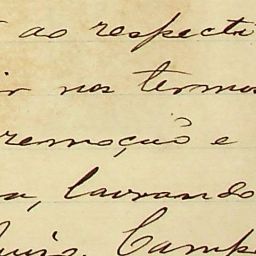 ao respecti
ir nos termos
remoção e
a, lavrando
Juiz, Camp